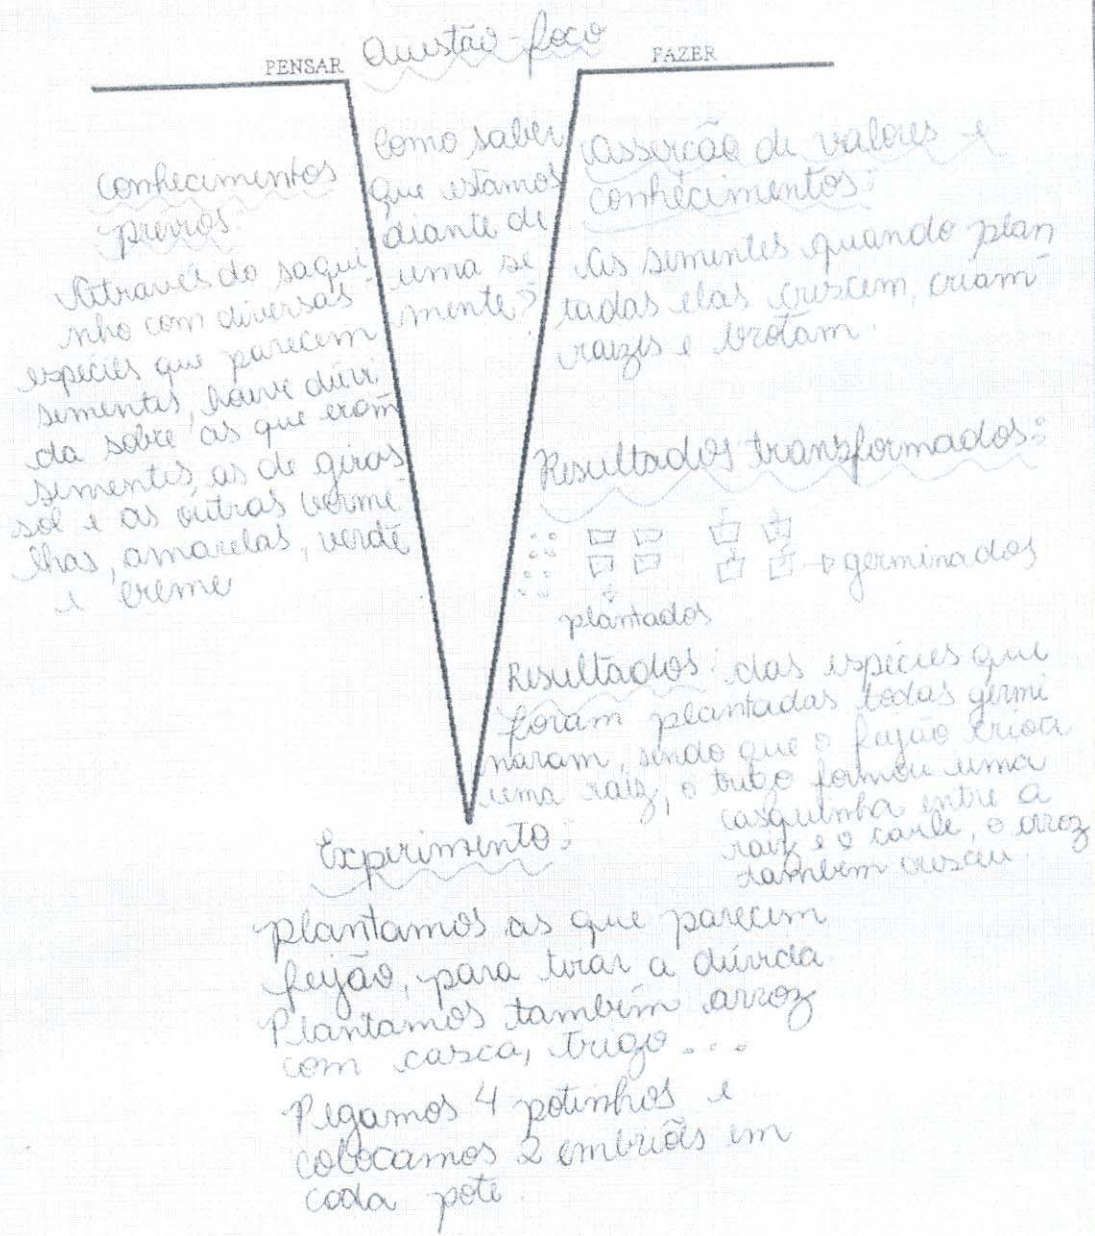 Questão-foco
PENSAR
FAZER
Como saber
que estamos
diante de
uma se
mente?
conhecimentos
prévios:
Através do saqui
nho com diversas
espécies que parecem
sementes, houve dúvi
da sobre as que eram
sementes, as de giras
sol e as outras verme
lhas, amarelas, verde
e creme
Asserção de valores e
conhecimentos:
As sementes quando plan
tadas elas crescem, criam
raizes e brotam.
Resultados transformados:
germinados
plantados
Resultados: das espécies que
foram plantadas todas germi
naram, sendo que o feijão criou
uma raiz, o trigo formou uma
casquinha entre a
raiz e o caule, o arroz
também cresceu.
Experimento:
plantamos as que parecem
feijão, para tirar a dúvida.
Plantamos também arroz
com casca, trigo...
Pegamos 4 potinhos e
colocamos 2 embriões em
cada pote.